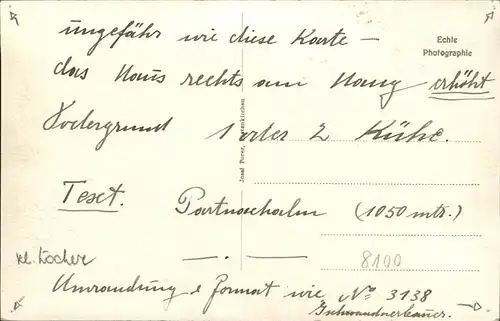 ungefähr wie diese Karte —
Echte
Photographie
das Haus rechts am Hang erhöht
Vodergrund 1 oder 2 Kühe.
Text. Partnachalm (1050 mtr.)
8100
kl. Löcher
Umrandung & Format wie No 3138
Gschwandnerbauer.